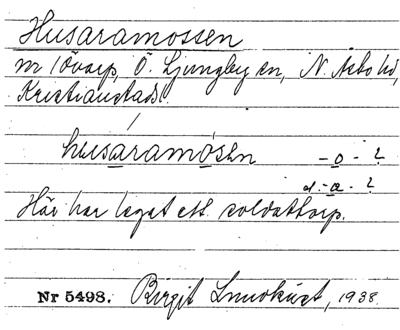 Husaramossen
nr 1 Övarp, Ö. Ljungby sn, N. Åsbo hd,
Kristianstads l.
husaramósen - o - ?
d. - a - ?
Här har legat ett soldattorp.
Nr 5498. Birgit Lundkvist, 1938